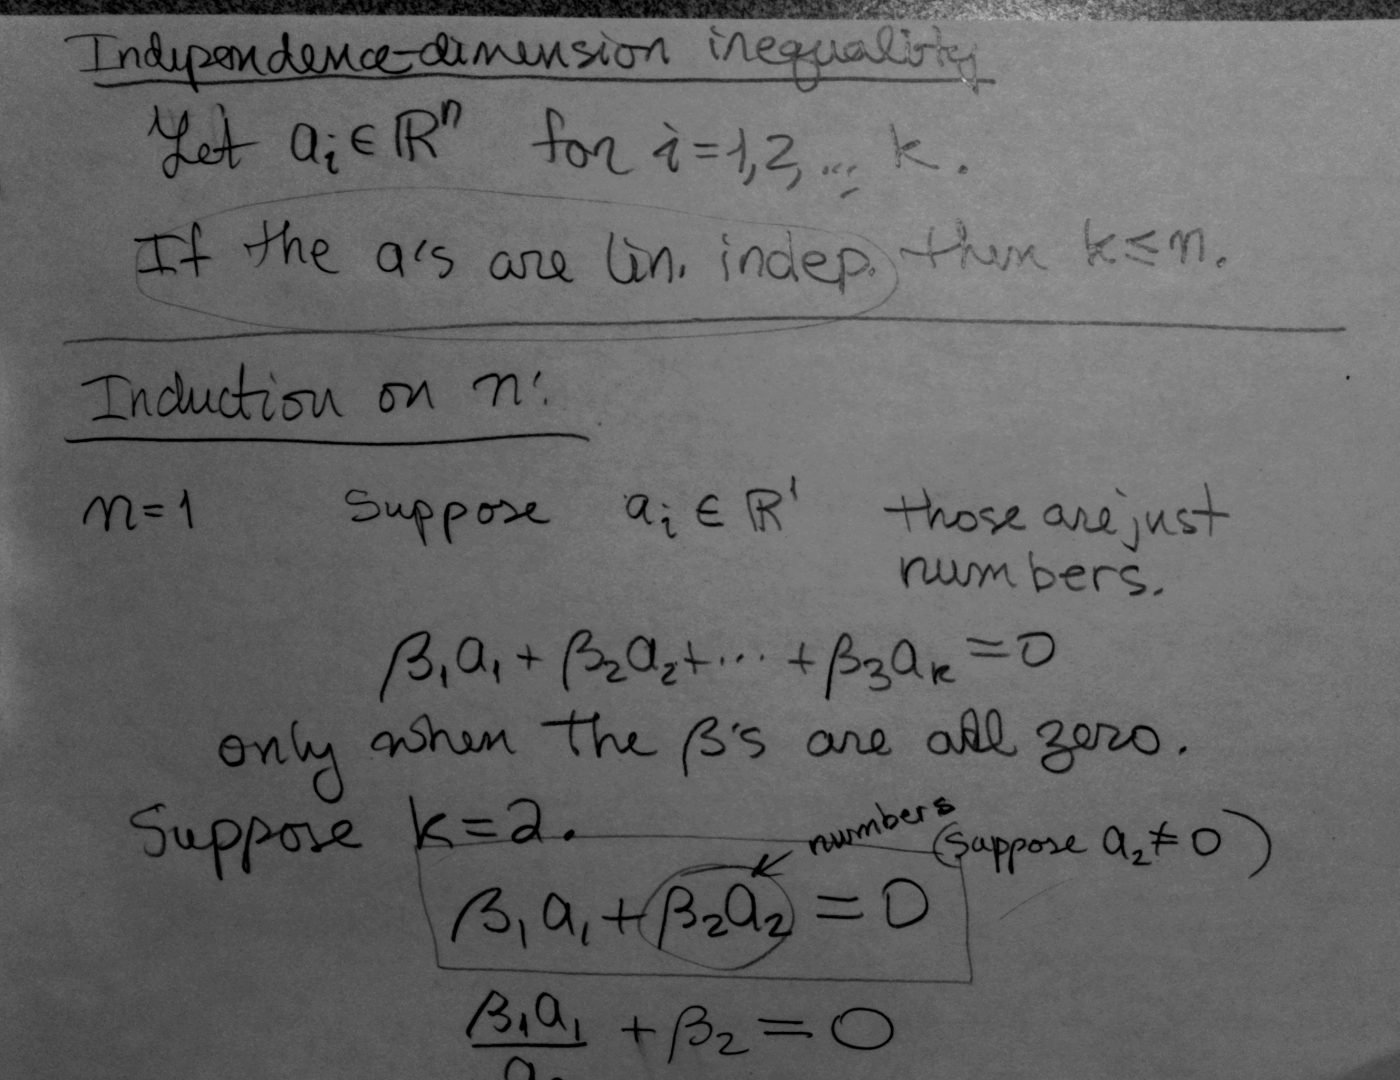 Independence-dimension inequality
Let aᵢ ∈ ℝⁿ for i=1,2, ..., k.
If the a's are lin. indep. then k ≤ n.
Induction on n:
n=1 Suppose aᵢ ∈ ℝ¹ those are just
numbers.
β₁a₁ + β₂a₂ + ... + β₃aₖ = 0
only when the β's are all zero.
Suppose k=2. numbers (suppose a₂ ≠ 0)
β₁a₁ + β₂a₂ = 0
β₁a₁ + β₂ = 0